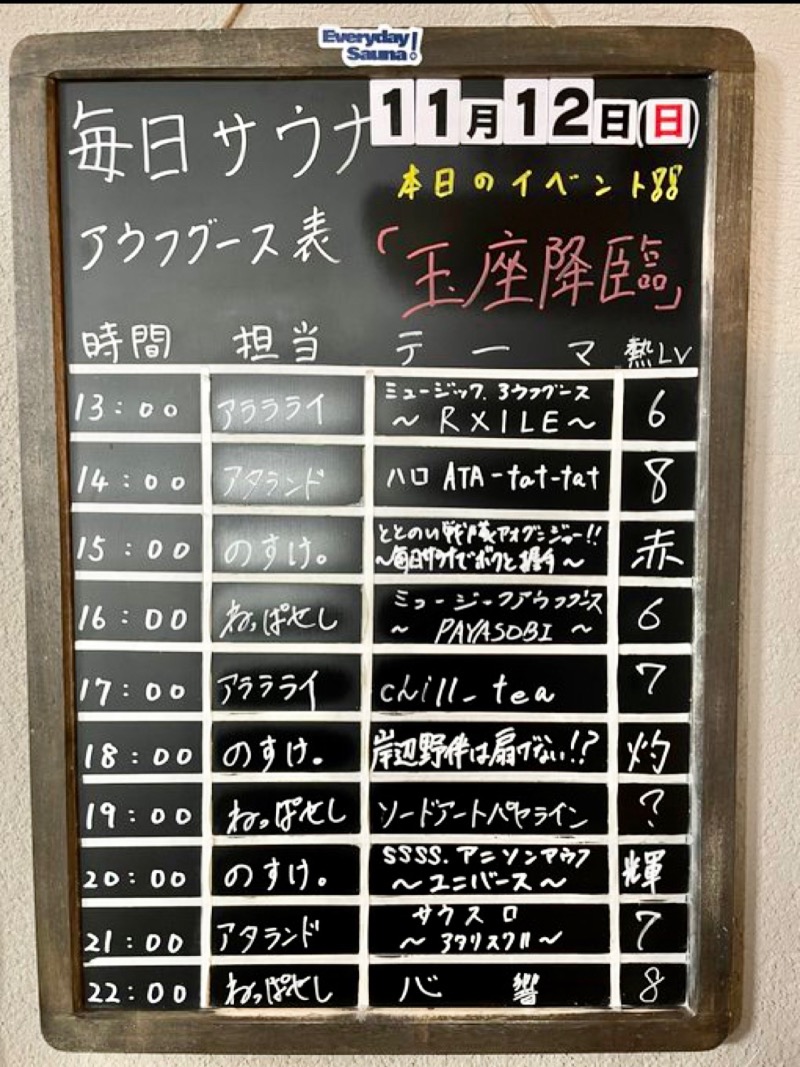 Everyday
Sauna!
毎日サウナ
11月12日(日)
本日のイベント
アウフグース表
「玉座降臨」
時間 担当 テーマ 熱LV
13:00 アララライ ミュージックアウフグース 6
～RXILE～
14:00 アタランド ハロ ATA-tat-tat 8
15:00 のすけ。 ととのい戦隊アオグンジャー!! 赤
～毎日サウナでボクと握手～
16:00 ねっぱせし ミュージックアウフグース 6
～ PAYASOBI ～
17:00 アララライ chill_tea 7
18:00 のすけ。 岸辺野伴は扇がない!? 灼
19:00 ねっぱせし ソードアートパヤライン ?
20:00 のすけ。 SSSS.アニソンアウフ 輝
～ユニバース～
21:00 アタランド サウスロ 7
～アタリスクII～
22:00 ねっぱせし 心 響 8